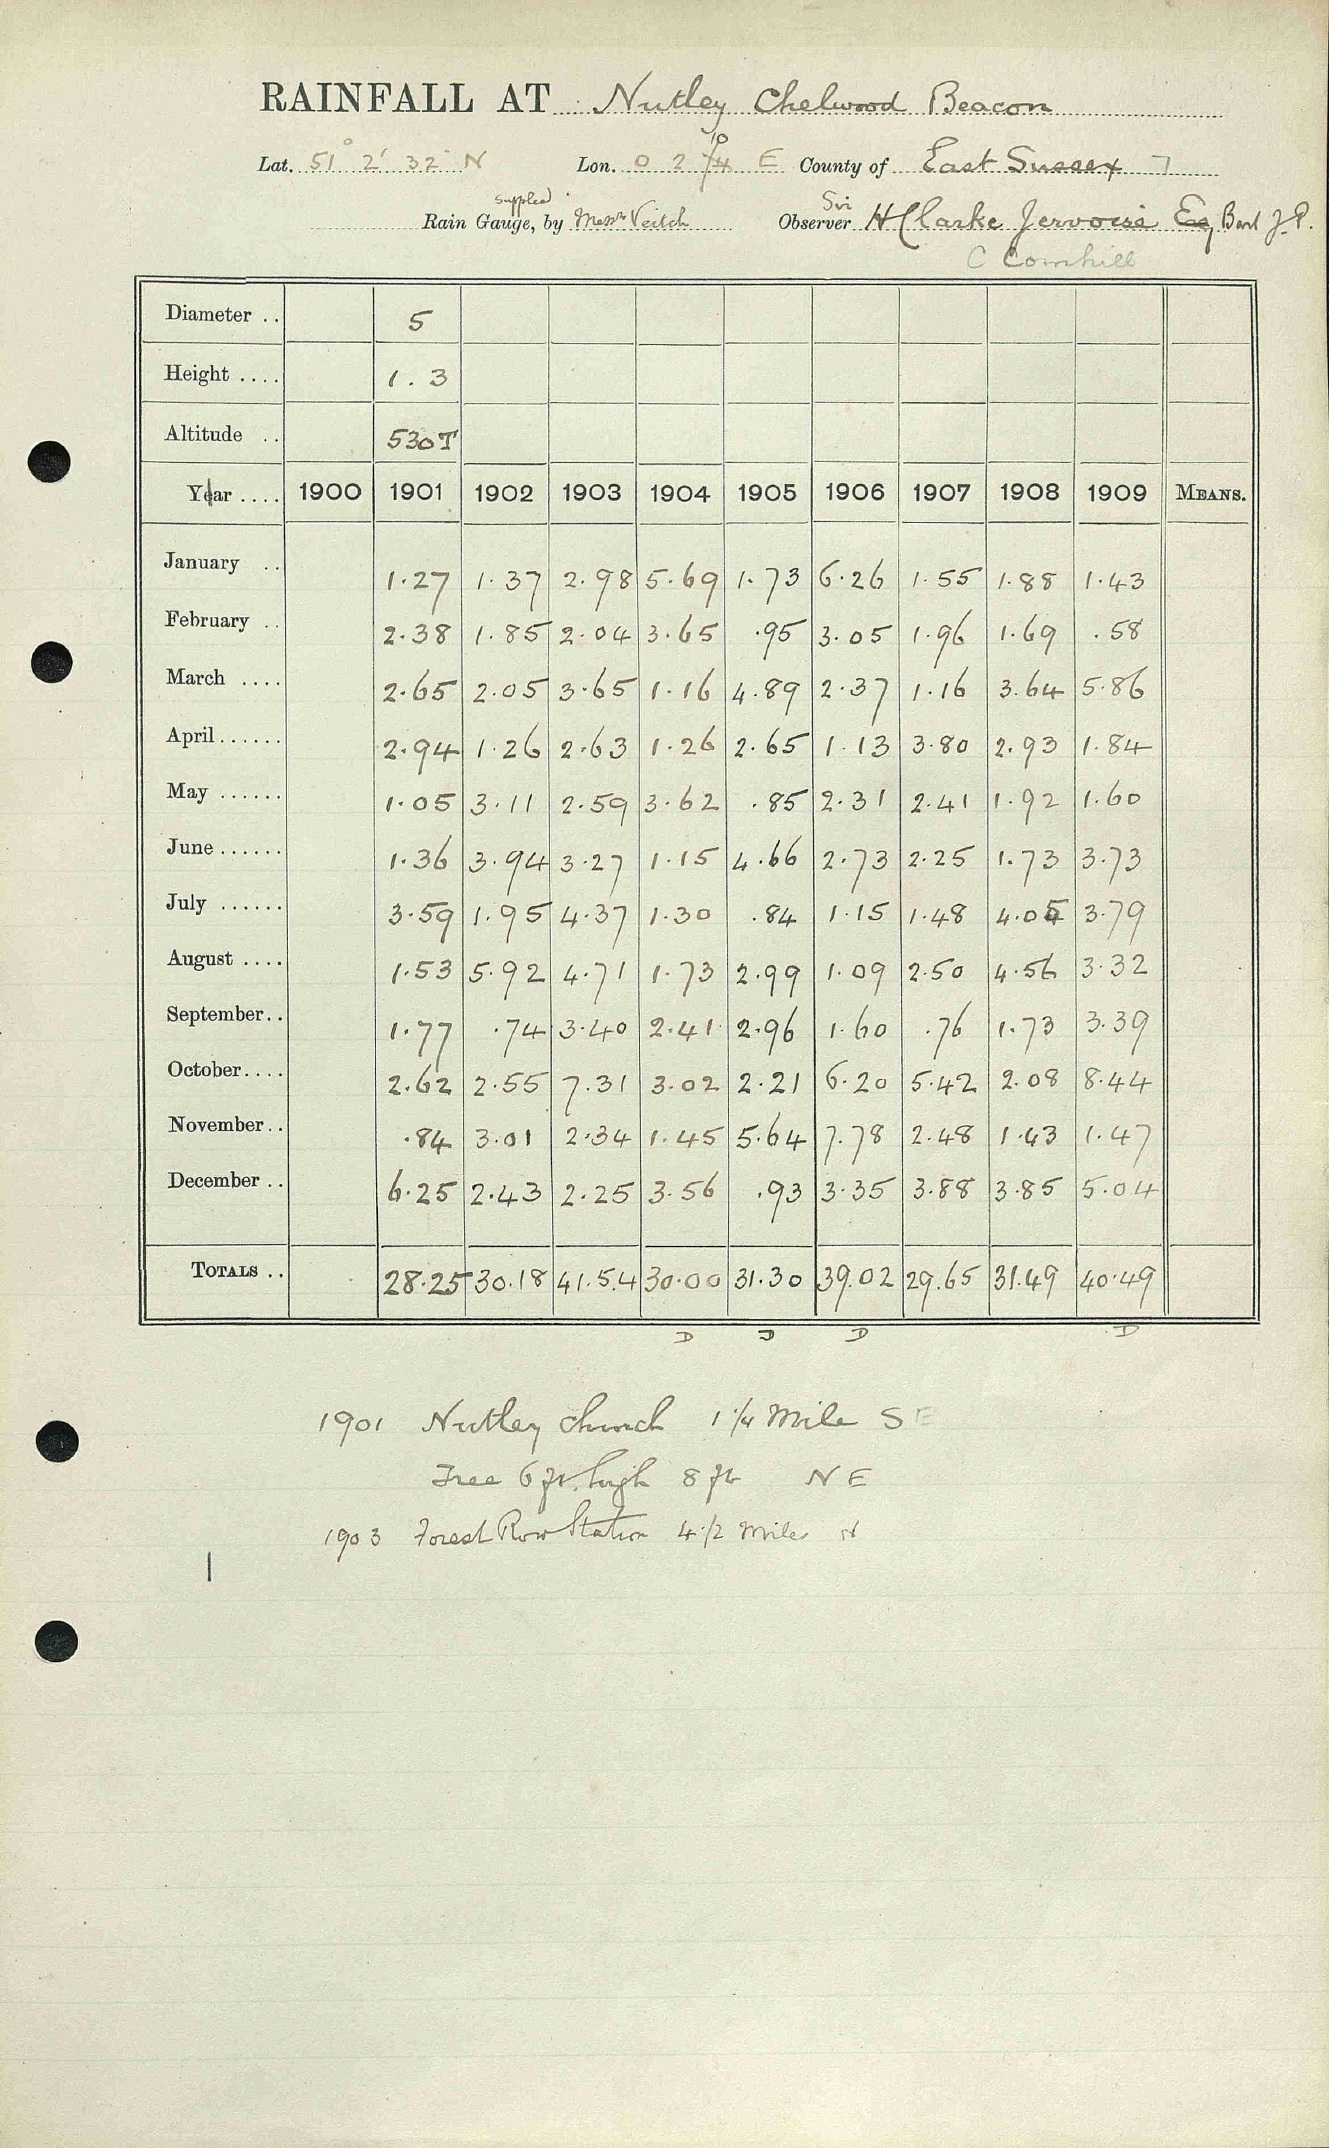 RAINFALL AT Nutley Chelwood Beacon
Lat. 51° 2' 32" N Lon. 0 2 10 E County of East Sussex 7
Rain Gauge, supplied by Messrs Veitch Observer Sir H Clarke Jervoise Esq Bart J.P.
C Cornhill
Diameter .. 5
Height .... 1.3
Altitude .. 530T
Year .... 1900 1901 1902 1903 1904 1905 1906 1907 1908 1909 MEANS.
January .. 1.27 1.37 2.98 5.69 1.73 6.26 1.55 1.88 1.43
February .. 2.38 1.85 2.04 3.65 .95 3.05 1.96 1.69 .58
March .... 2.65 2.05 3.65 1.16 4.89 2.37 1.16 3.64 5.86
April ...... 2.94 1.26 2.63 1.26 2.65 1.13 3.80 2.93 1.84
May ...... 1.05 3.11 2.59 3.62 .85 2.31 2.41 1.92 1.60
June ...... 1.36 3.94 3.27 1.15 4.66 2.73 2.25 1.73 3.73
July ...... 3.59 1.95 4.37 1.30 .84 1.15 1.48 4.05 3.79
August .... 1.53 5.92 4.71 1.73 2.99 1.09 2.50 4.56 3.32
September .. 1.77 .74 3.40 2.41 2.96 1.60 .76 1.73 3.39
October .... 2.62 2.55 7.31 3.02 2.21 6.20 5.42 2.08 8.44
November .. .84 3.01 2.34 1.45 5.64 7.78 2.48 1.43 1.47
December .. 6.25 2.43 2.25 3.56 .93 3.35 3.88 3.85 5.04
TOTALS .. 28.25 30.18 41.54 30.00 31.30 39.02 29.65 31.49 40.49
D D D D
1901 Nutley church 1 1/4 Mile SE
Tree 6 ft. high 8 ft NE
1903 Forest Row Station 4 1/2 Miles N